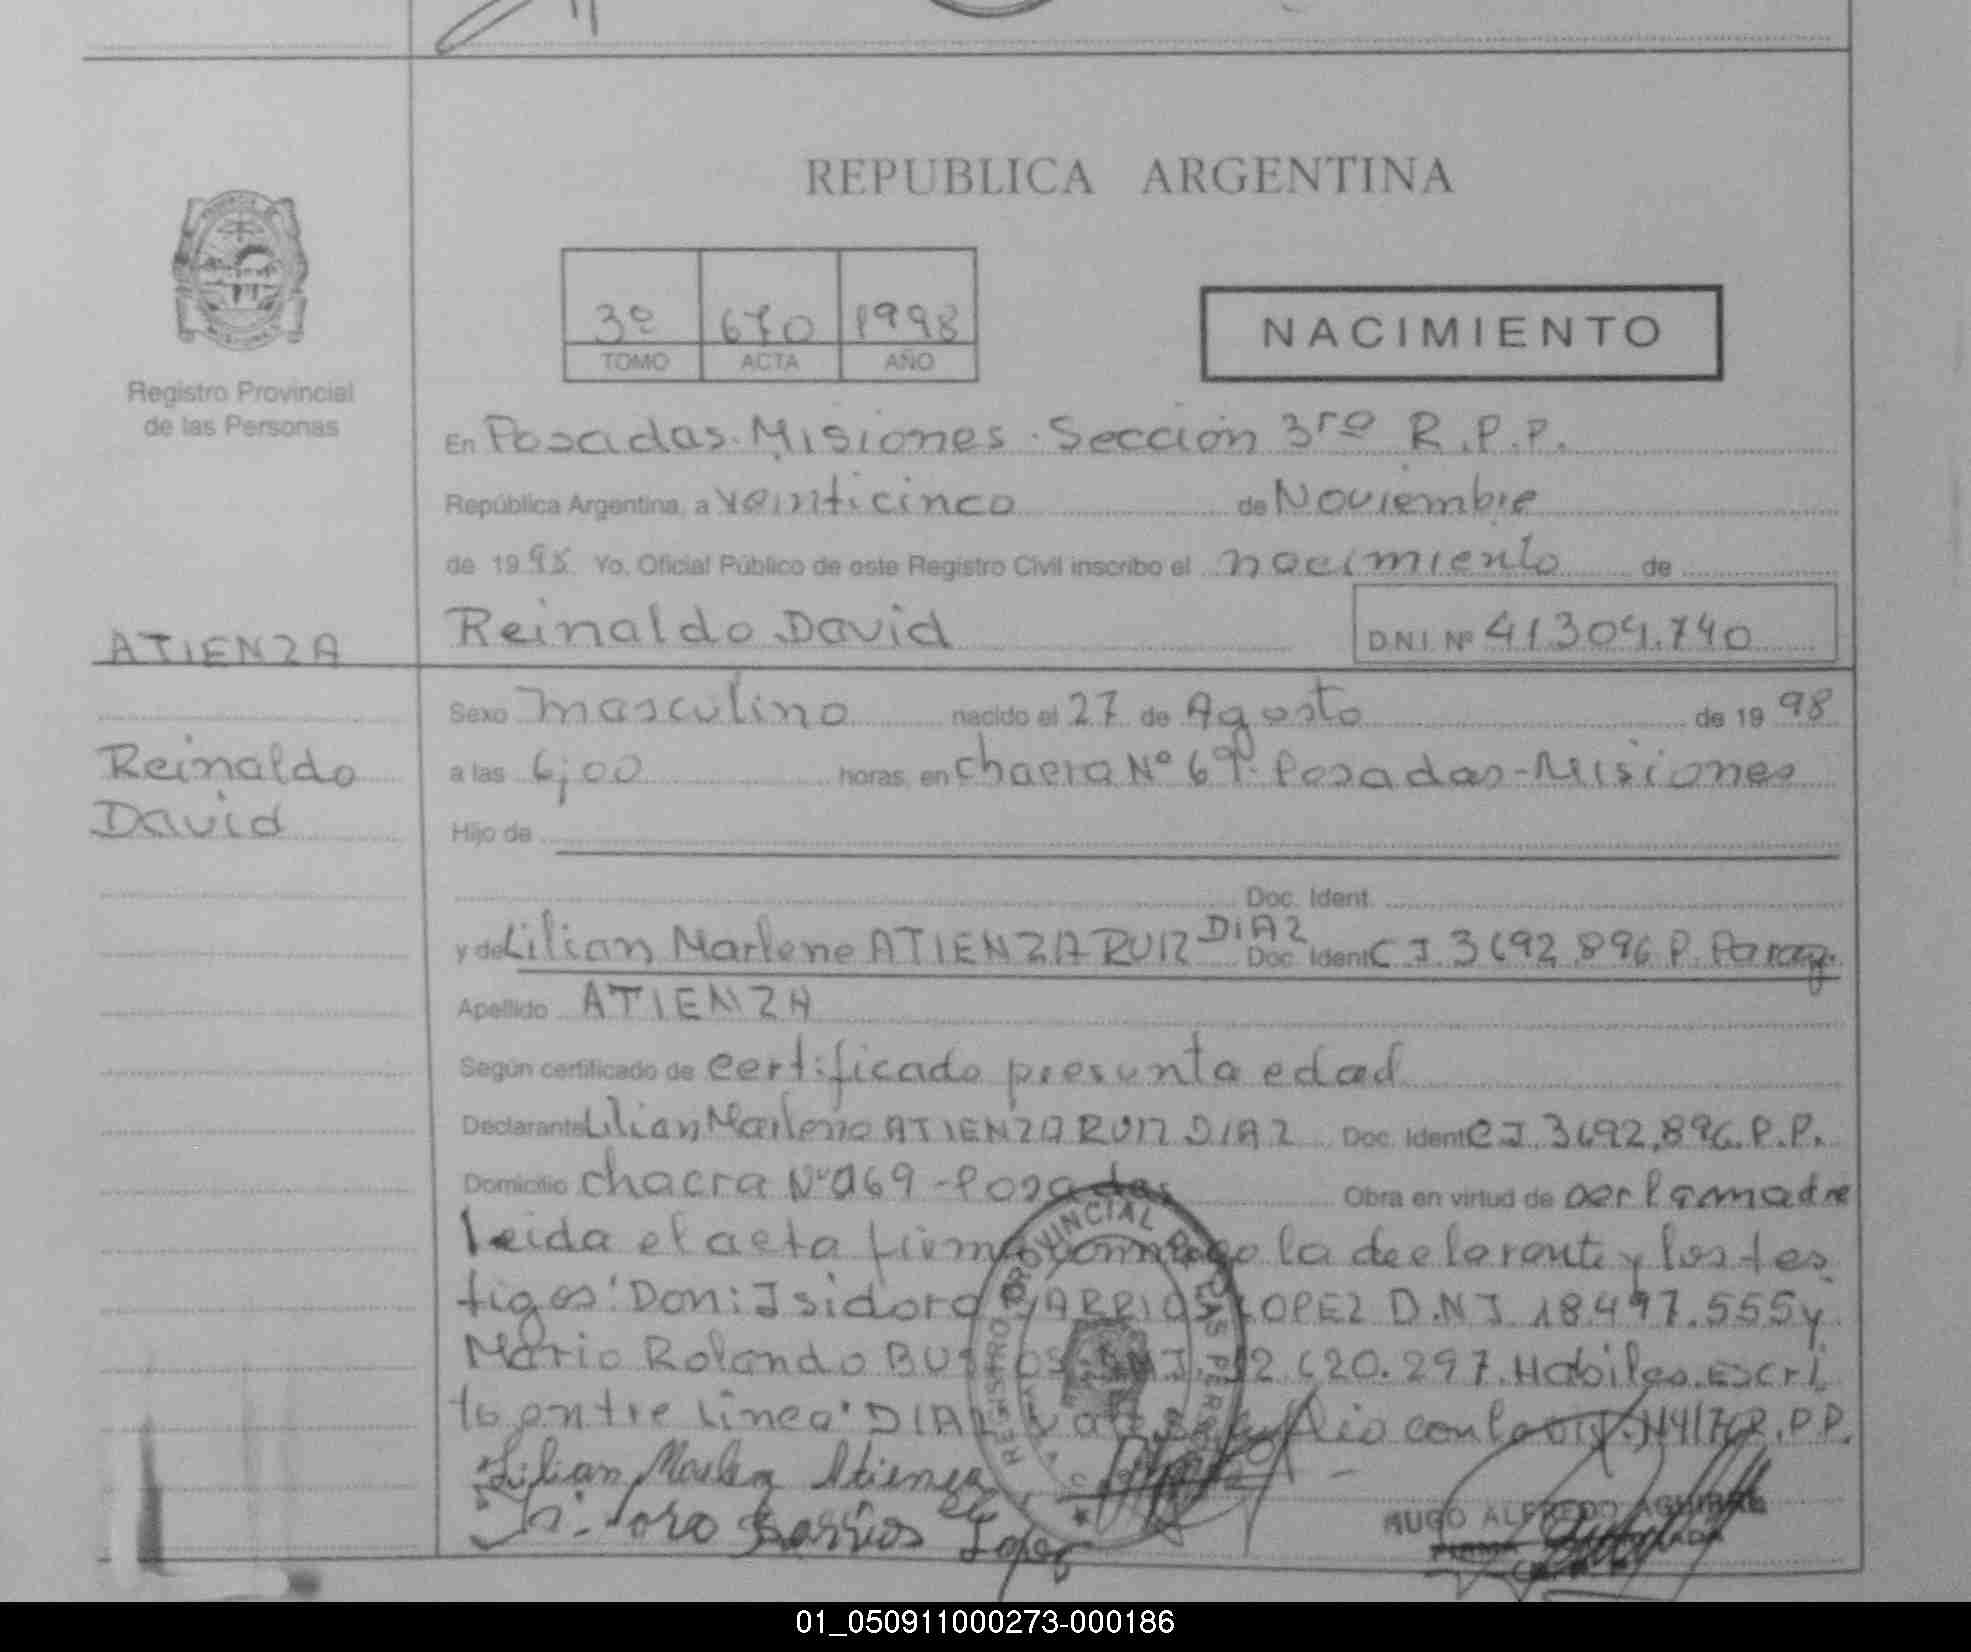 REPUBLICA ARGENTINA
3º 670 1998
TOMO ACTA AÑO
NACIMIENTO
Registro Provincial
de las Personas
En Posadas. Misiones. Sección 3ra R.P.P.
República Argentina, a veinticinco de Noviembre
de 1998 Yo, Oficial Público de este Registro Civil inscribo el nacimiento de
ATIENZA
Reinaldo David
D.N.I. Nº 41.304.740
Reinaldo
David
Sexo masculino nacido el 27 de Agosto de 1998
a las 6,00 horas, en chacra Nº 69. Posadas-Misiones
Hijo de
Doc. Ident.
y de Lilian Marlene ATIENZA RUIZ DIAZ Doc. Ident C I. 3692.896 P. Parag.
Apellido ATIENZA
Según certificado de certificado presunta edad
Declarante Lilian Marlene ATIENZA RUIZ DIAZ Doc. Ident C I. 3692.896. P.P.
Domicilio chacra Nº 69 - Posadas Obra en virtud de ser la madre
leida el acta firma conmigo la declarante y los tes
tigos: Don: Isidoro BARRIOS LOPEZ D.N.I. 18.497.555 y
Mario Rolando D.N.I. 620.297. Habiles. Escri
to entre linea: DIAZ con la R.P.P.
Lilian Atienza
Isidoro Barrios
Lopez
REGISTRO PROVINCIAL DE LAS PERSONAS
HUGO ALFREDO
01_050911000273-000186